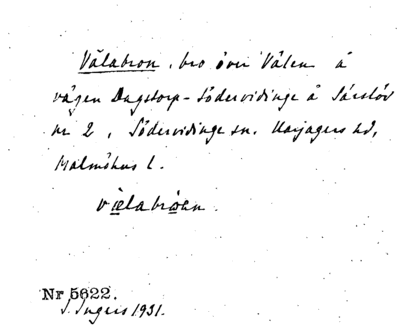 Välabron, bro över Välen å
vägen Dagstorp-Södervidinge å Särslöv
nr 2, Södervidinge sn. Harjagers hd,
Malmöhus l.
vælabroen.
Nr 5622.
S. Ingers 1931.